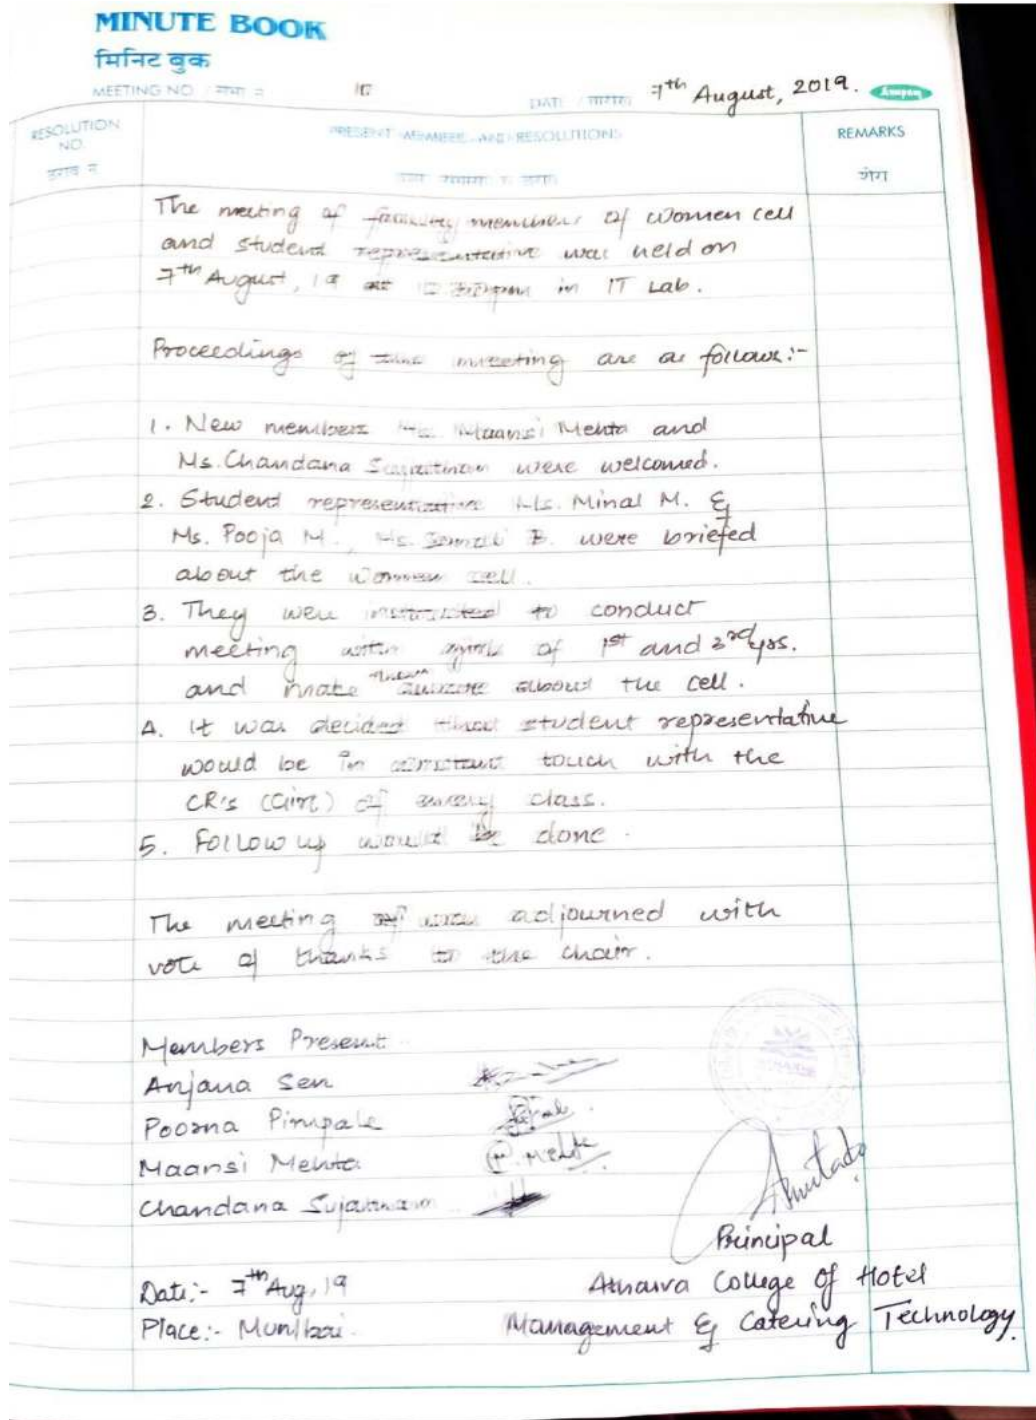 MINUTE BOOK
मिनिट बुक
MEETING NO. / सभा नं
7th August, 2019. Anupam
RESOLUTION NO. PRESENT MEMBERS AND RESOLUTIONS REMARKS
ठराव नं शेरा
The meeting of faculty members of women cell
and student representative was held on
7th August, 19 at in IT Lab.
Proceedings of the meeting are as follows:-
1. New members Ms. Maansi Mehta and
Ms. Chandana were welcomed.
2. Student representative Ms. Minal M. &
Ms. Pooja M., Ms. B. were briefed
about the women cell.
3. They were instructed to conduct
meeting with girls of 1st and 3rd yrs.
and make them aware about the cell.
4. It was decided that student representative
would be in constant touch with the
CR's (Girl) of every class.
5. Follow up would be done.
The meeting was adjourned with
vote of thanks to the chair.
Members Present
Anjana Sen
Poorna Pimpale
Maansi Mehta M. Mehta
Chandana
Principal
Date:- 7th Aug, 19 Atharva College of Hotel
Place:- Mumbai. Management & Catering Technology.